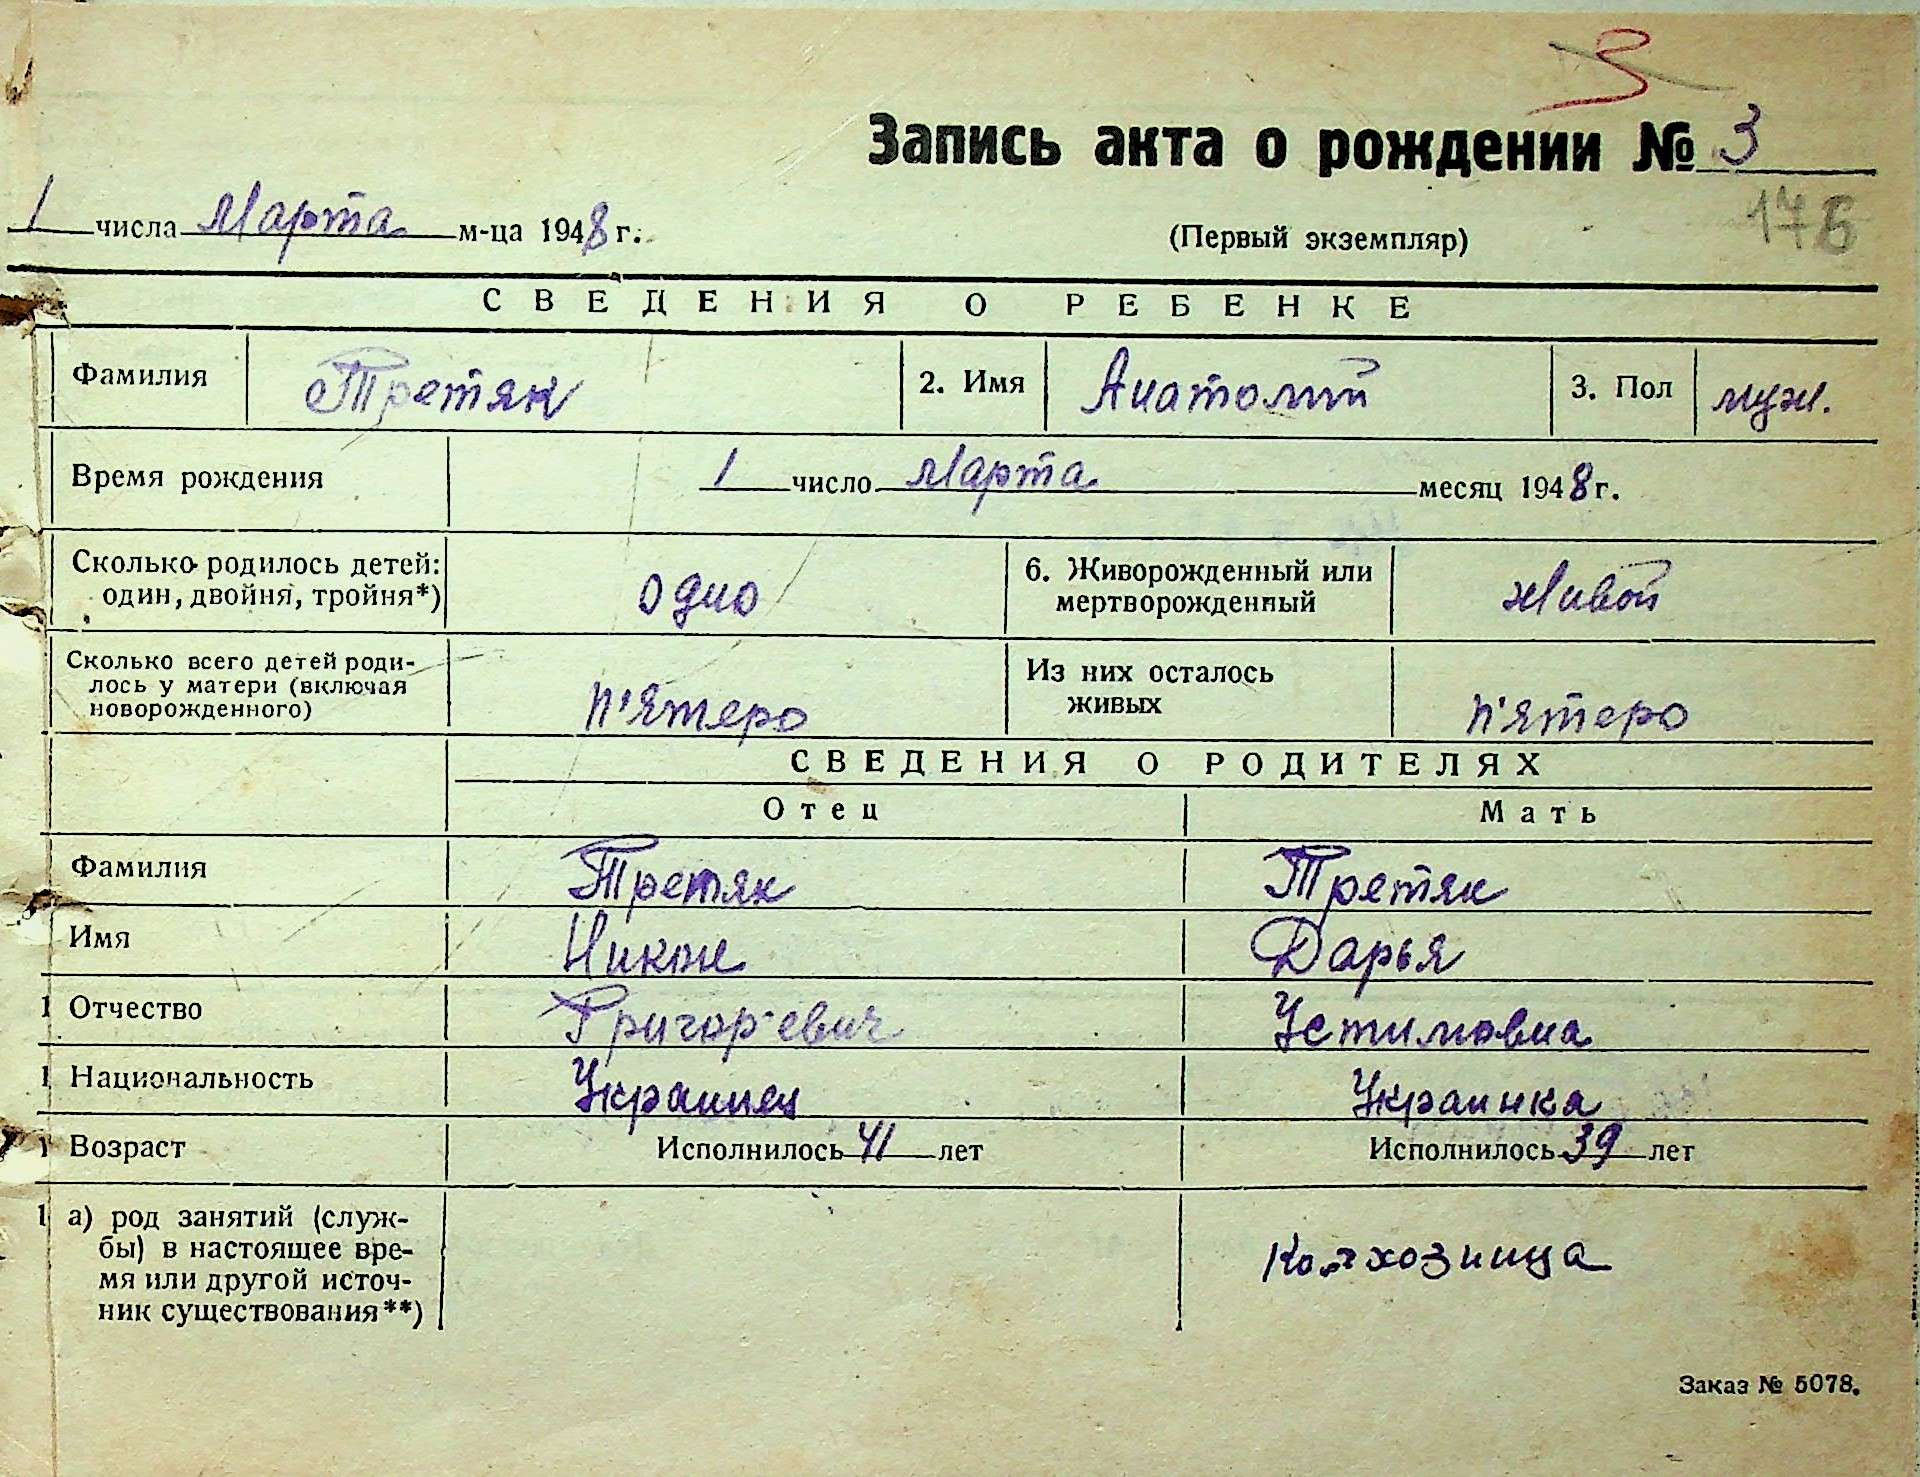 3
Запись акта о рождении № 3
1 числа Марта м-ца 1948 г.
(Первый экземпляр)
176
СВЕДЕНИЯ О РЕБЕНКЕ
Фамилия Третяк 2. Имя Анатолий 3. Пол муж.
Время рождения 1 число Марта месяц 1948 г.
Сколько родилось детей: один, двойня, тройня*) одно 6. Живорожденный или мертворожденный Живой
Сколько всего детей роди-
лось у матери (включая
новорожденного) п'ятеро Из них осталось живых п'ятеро
СВЕДЕНИЯ О РОДИТЕЛЯХ
Отец Мать
Фамилия Третяк Третяк
Имя Никон Дарья
1 Отчество Григор'евич Устимовна
1 Национальность Украинец Украинка
1 Возраст Исполнилось 41 лет Исполнилось 39 лет
1 а) род занятий (служ-
бы) в настоящее вре-
мя или другой источ-
ник существования**) Колхозница
Заказ № 5078.